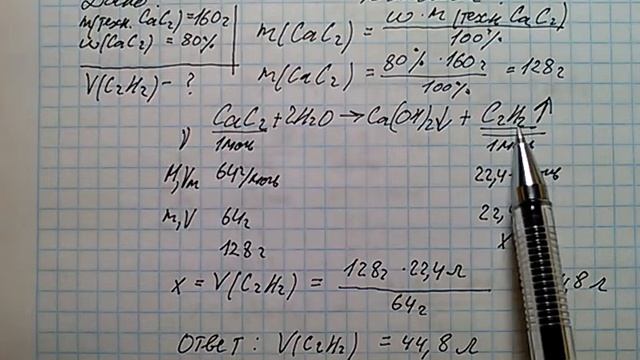 Дано:
m(техн. CaC2)=160г
ω(CaC2) = 80%
V(C2H2) - ?
m(CaC2) = ω · m(техн. CaC2) / 100%
m(CaC2) = 80% · 160г / 100% = 128г
CaC2 + 2H2O → Ca(OH)2↓ + C2H2↑
ν 1моль 1моль
M, Vm 64г/моль 22,4
m, V 64г 22,
128г x
x = V(C2H2) = 128г · 22,4л / 64г ,8л
Ответ: V(C2H2) = 44,8л